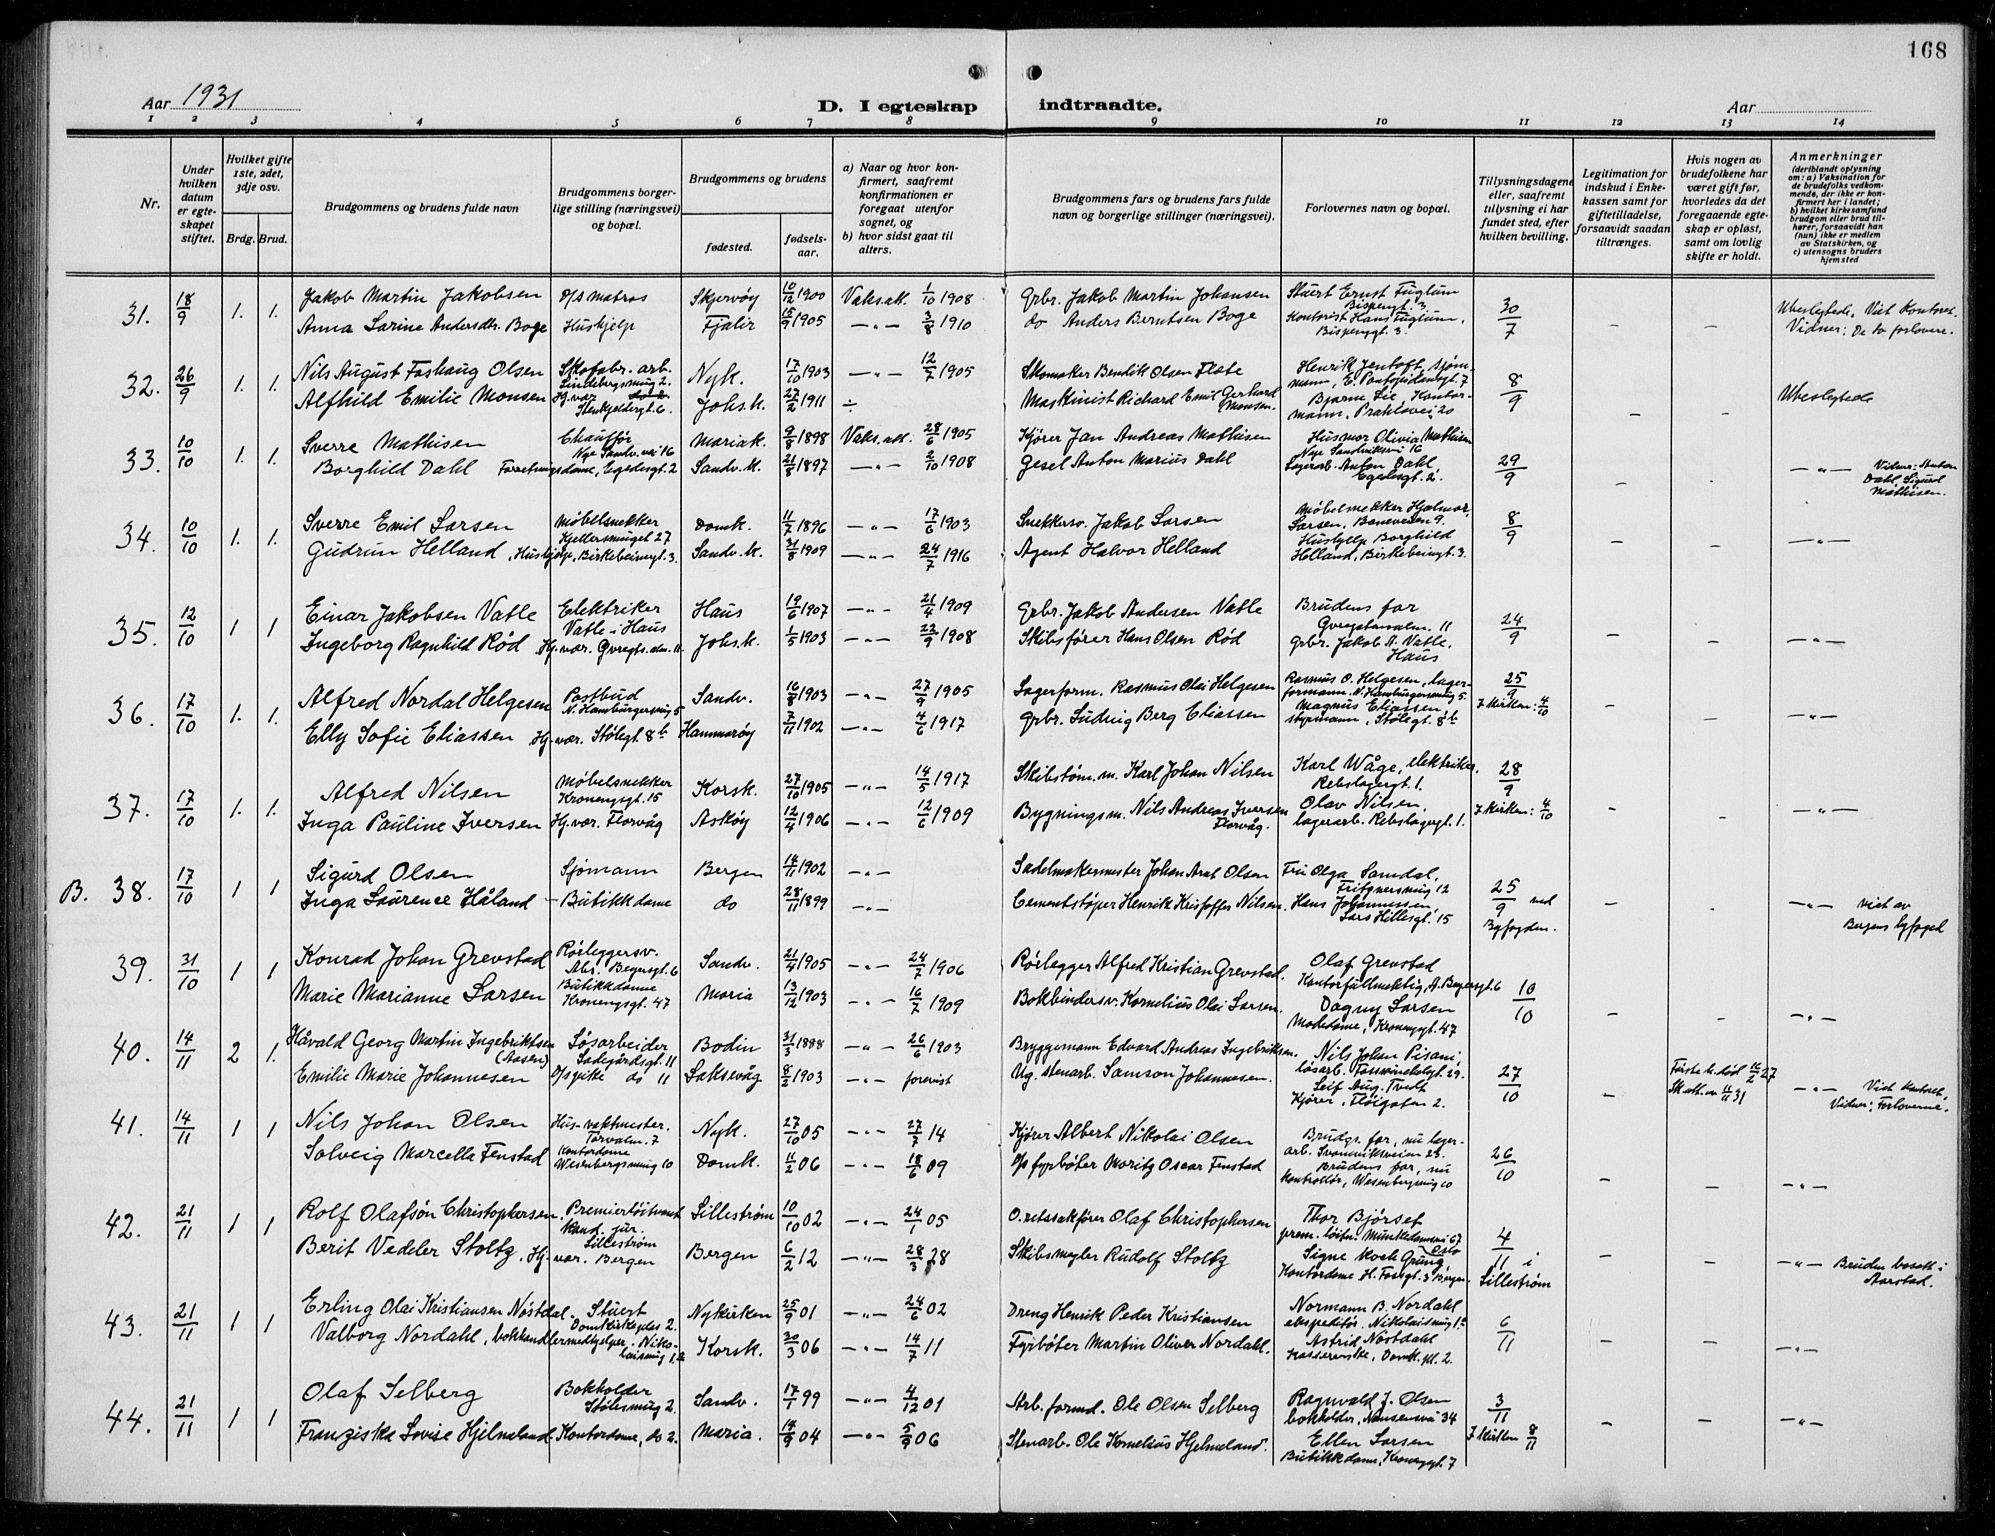 168
Aar 1931
D. I egteskap indtraadte.
Aar
1 2 3 4 5 6 7 8 9 10 11 12 13 14
Nr.
Under hvilken datum er egte-skapet stiftet.
Hvilket gifte 1ste, 2det, 3dje osv.
Brdg. Brud.
Brudgommens og brudens fulde navn
Brudgommens borger-lige stilling (næringsvei) og bopæl.
Brudgommens og brudens
fødested.
fødsels-aar.
a) Naar og hvor kon-firmert, saafremt konfirmationen er foregaat utenfor sognet, og
b) hvor sidst gaat til alters.
Brudgommens fars og brudens fars fulde navn og borgerlige stillinger (næringsvei).
Forlovernes navn og bopæl.
Tillysningsdagene eller, saafremt tillysning ei har fundet sted, efter hvilken bevilling.
Legitimation for indskud i Enke-kassen samt for giftetilladelse, forsaavidt saadan tiltrænges.
Hvis nogen av brudefolkene har været gift før, hvorledes da det foregaaende egte-skap er opløst, samt om lovlig skifte er holdt.
Anmerkninger (deriblandt oplysning om: a) Vaksination for de brudefolks vedkom-mende, der ikke er kon-firmert her i landet; b) hvilket kirkesamfund brudgom eller brud til-hører, forsaavidt han (hun) ikke er medlem av Statskirken, og c) utensogns bruders hjemsted
31. 18/9 1. 1. Jakob Martin Jakobsen D/S matros Skjervøy 10/12 1900 Vaks.att. 1/10 1908 Grbr. Jakob Martin Johansen Stuert Ernst Fuglum Bispengt. 3 30/7 – – Ubeslegtede. Viet Kontoret.
Anna Sarine Andersdtr. Boge Hushjelp Fjaler 15/9 1905 —"— 3/8 1910 do Anders Berntsen Boge Kontorist Hans Fuglum, Bispengt. 3. Vidner: De to forlovere.
32. 26/9 1. 1. Nils August Foshaug Olsen Skofabr. arb. Lindebergsmug 2. Nyk. 17/10 1903 —"— 12/7 1905 Skomaker Bendik Olsen Flote Henrik Jentoft, sjømmann, E. Pontopidansgt. 7 8/9 – – Ubeslegtede
Alfhild Emilie Monsen Hj. vær Stenkjeldergt. 6. Johs.k. 27/2 1911 ÷ Maskinist Richard Emil Gerhard Monsen. Bjarne Lie, Kontormann, Brakløvei 20
33. 10/10 1. 1. Sverre Mathisen Chauffør Nye Sandv. vei 16 Mariak. 9/8 1898 Vaks.att. 28/6 1905 Kjører Jan Andreas Mathisen Husmor Olivia Mathisen Nye Sandviksvei 16 29/9 – – —"— Vidner: Anton Dahl, Sigurd Mathisen.
Borghild Dahl Forretningsdame, Egedesgt. 2 Sandv.k. 21/8 1897 —"— 2/10 1908 Gesel Anton Marius Dahl Lagerarb. Anton Dahl, Egedesgt. 2.
34. 10/10 1. 1. Sverre Emil Larsen Møbelsnekker Kjellersmuget 27 Domk. 11/7 1896 —"— 17/6 1903 Snekkersv. Jakob Larsen Møbelsnekker Hjalmar Larsen, Baneveien 9. 8/9 – – —"—
Gudrun Helland, Hushjelp, Birkebeinergt. 3. Sandv.k. 31/8 1909 —"— 24/7 1916 Agent Halvor Helland Hushjelp Borghild Helland, Birkebeinergt. 3.
35. 12/10 1 1 Einar Jakobsen Vatle Elektriker Vatle i Haus Haus 19/6 1907 —"— 21/4 1909 Grbr. Jakob Andersen Vatle Brudens far Øvregatsalm. 11 24/9 – – —"—
Ingeborg Ragnhild Rød Hj. vær. Øvregts. alm. 11 Johs.k. 1/5 1903 —"— 22/9 1908 Skibsfører Hans Olsen Rød grbr. Jakob A. Vatle, Haus
36. 17/10 1. 1. Alfred Nordal Helgesen Postbud N. Hamburgersmug 5 Sandv. 16/8 1903 —"— 27/9 1905 Lagerform. Rasmus Olai Helgesen Rasmus O. Helgesen, lagerformann. N. Hamburgersmug 5. 25/9 – – —"—
Elly Sofie Eliassen Hj. vær. Stølegt. 8b Hammarøy 7/11 1902 —"— 4/6 1917 Grbr. Ludvig Berg Eliassen Magnus Eliassen styrmann, Stølegt. 8b I kirken: 4/10
37. 17/10 1. 1. Alfred Nilsen Møbelsnekker Kronengsgt. 15 Korsk. 27/10 1905 —"— 14/5 1917 Skibstøm.m. Karl Johan Nilsen Karl Wåge, elektriker, Rebslagergt. 1. 28/9 – – —"—
Inga Pauline Iversen Hj. vær. Florvåg Askøy 12/4 1906 —"— 12/6 1909 Bygningsm. Nils Andreas Iversen Florvåg. Olav Nilsen, lagerarb. Rebslagergt. 1. I kirken: 4/10
B. 38. 17/10 1 1 Sigurd Olsen Sjømann Bergen 14/11 1902 —"— Sadelmakermester Johan Arnt Olsen Fru Olga Samdal, Frifgnersmug 12 25/9 ved Byfogden. – – —"— viet av Bergens byfoged
Inga Laurence Håland – Butikkdame do 28/11 1899 —"— Cementstøper Henrik Kristoffer Nilsen. Hans Johannessen Lars Hillesgt. 15
39. 31/10 1 1 Konrad Johan Grevstad Rørleggersv. Abs. Beyersgt. 6 Sandv. 21/4 1905 —"— 24/7 1906 Rørlegger Alfred Kristian Grevstad. Olaf Grevstad Kontorfullmektig, A. Beyersgt. 6 10/10 – – —"—
Marie Marianne Larsen Butikkdame Kronengsgt. 47 Maria 13/12 1903 —"— 16/7 1909 Bokbindersv. Kornelius Olai Larsen. Dagny Larsen Motedame, Kronengsgt. 47
40. 14/11 2 1. Håvald Georg Martin Ingebriktsen (Aasen) Løsarbeider Ladegårdsgt. 11 Bodin 31/3 1888 —"— 26/6 1903 Bryggemann Edvard Andreas Ingebriktsen. Nils Johan Pisani, løsarb. Formaneksgt. 29. 27/10 – Første k. død 16/2 27 Sk.att. av 11/11 31 —"— Viet kontoret, Vidner: Forloverne.
Emilie Marie Johannesen D/Spike do 11 Laksevåg 8/2 1903 —"— forevist Ug. stenarb. Samson Johannesen. Leif Aug. Tvedt Kjører, Fløigaten 2.
41. 14/11 1 1 Nils Johan Olsen Hus-vaktmester. Torvalm. 7 Nyk. 27/10 05 —"— 27/7 14 Kjører Albert Nikolai Olsen Brudgs. far, nu lagerarb. Svaneviksveien 23. 26/10 – – —"—
Solveig Marcella Fenstad Kontordame Wesenbergsmug 10 Domk. 11/2 06 —"— 18/6 09 D/S fyrbøter Moritz Oscar Fenstad Brudens far, nu kontrollør, Wesenbergsmug 10
42. 21/11 1 1 Rolf Olafsøn Christophersen. Premierløitnant Kand. jur. Lillestrøm Lillestrøm 10/10 02 —"— 24/1 05 O.retssakfører Olaf Christophersen Thor Bjørset prem.løitn. Munkedamsvei 67 Oslo 4/11 i Lillestrøm – – —"— Bruden bosatt i Aarstad.
Berit Vedeler Stoltz. Hj. vær. Bergen Bergen 6/2 12 —"— 28/3 28 Skibsmegler Rudolf Stoltz Signe Koch Grung Kontordame H. Fossgt. 3 Bergen.
43. 21/11 1 1 Erling Olai Kristiansen Nøstdal. Stuert Domkirkeplas 2. Nykirken 25/9 01 —"— 24/6 02 Dreng Henrik Peder Kristiansen Normann B. Nordahl ekspeditør. Nikolaismug 12 6/11 – – —"—
Valborg Nordahl, bokhandlermedhjelper, Nikolaismug 12 Korsk. 30/3 06 —"— 14/7 11 Fyrbøter Martin Oliver Nordahl. Astrid Nøstdahl Kassererske, Domk.pl. 2.
44. 21/11 1 1 Olaf Selberg Bokholder Stølesmug 2. Sandv. 17/1 99 —"— 4/12 01 Arb. formd. Ole Olsen Selberg Ragnvald J. Olsen bokholder, Nansensvei 34 3/11 – – —"—
Franziska Lovise Hjelmeland. Kontordame, do 2. Maria. 14/9 04 —"— 5/9 06 Stenarb. Ole Kornelius Hjelmeland. Ellen Larsen Butikkdame, Kronengsgt. 7 I kirken 8/11